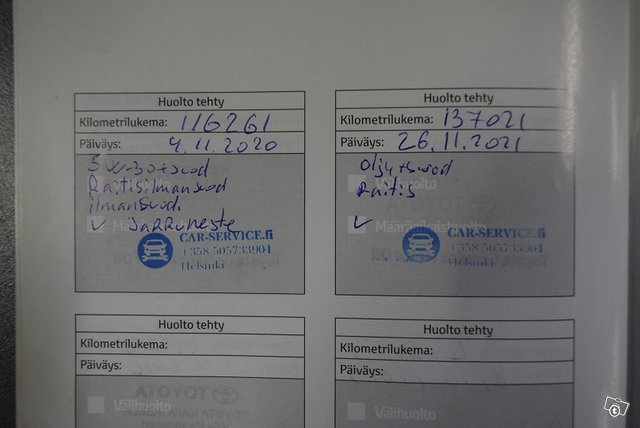 Huolto tehty
Kilometrilukema: 116261
Päiväys: 4.11.2020
5W-30+suod
Raitisilmansuod
ilmansuod.
✓ Jarruneste
CAR-SERVICE.fi
+358 505733904
Helsinki
Huolto tehty
Kilometrilukema: 137021
Päiväys: 26.11.2021
Öljy+suod
Raitis
✓
Määräaikaishuolto
CAR-SERVICE.fi
+358 505733904
Helsinki
Huolto tehty
Kilometrilukema:
Päiväys:
Välihuolto
Huolto tehty
Kilometrilukema:
Päiväys:
Välihuolto
TOYOTA